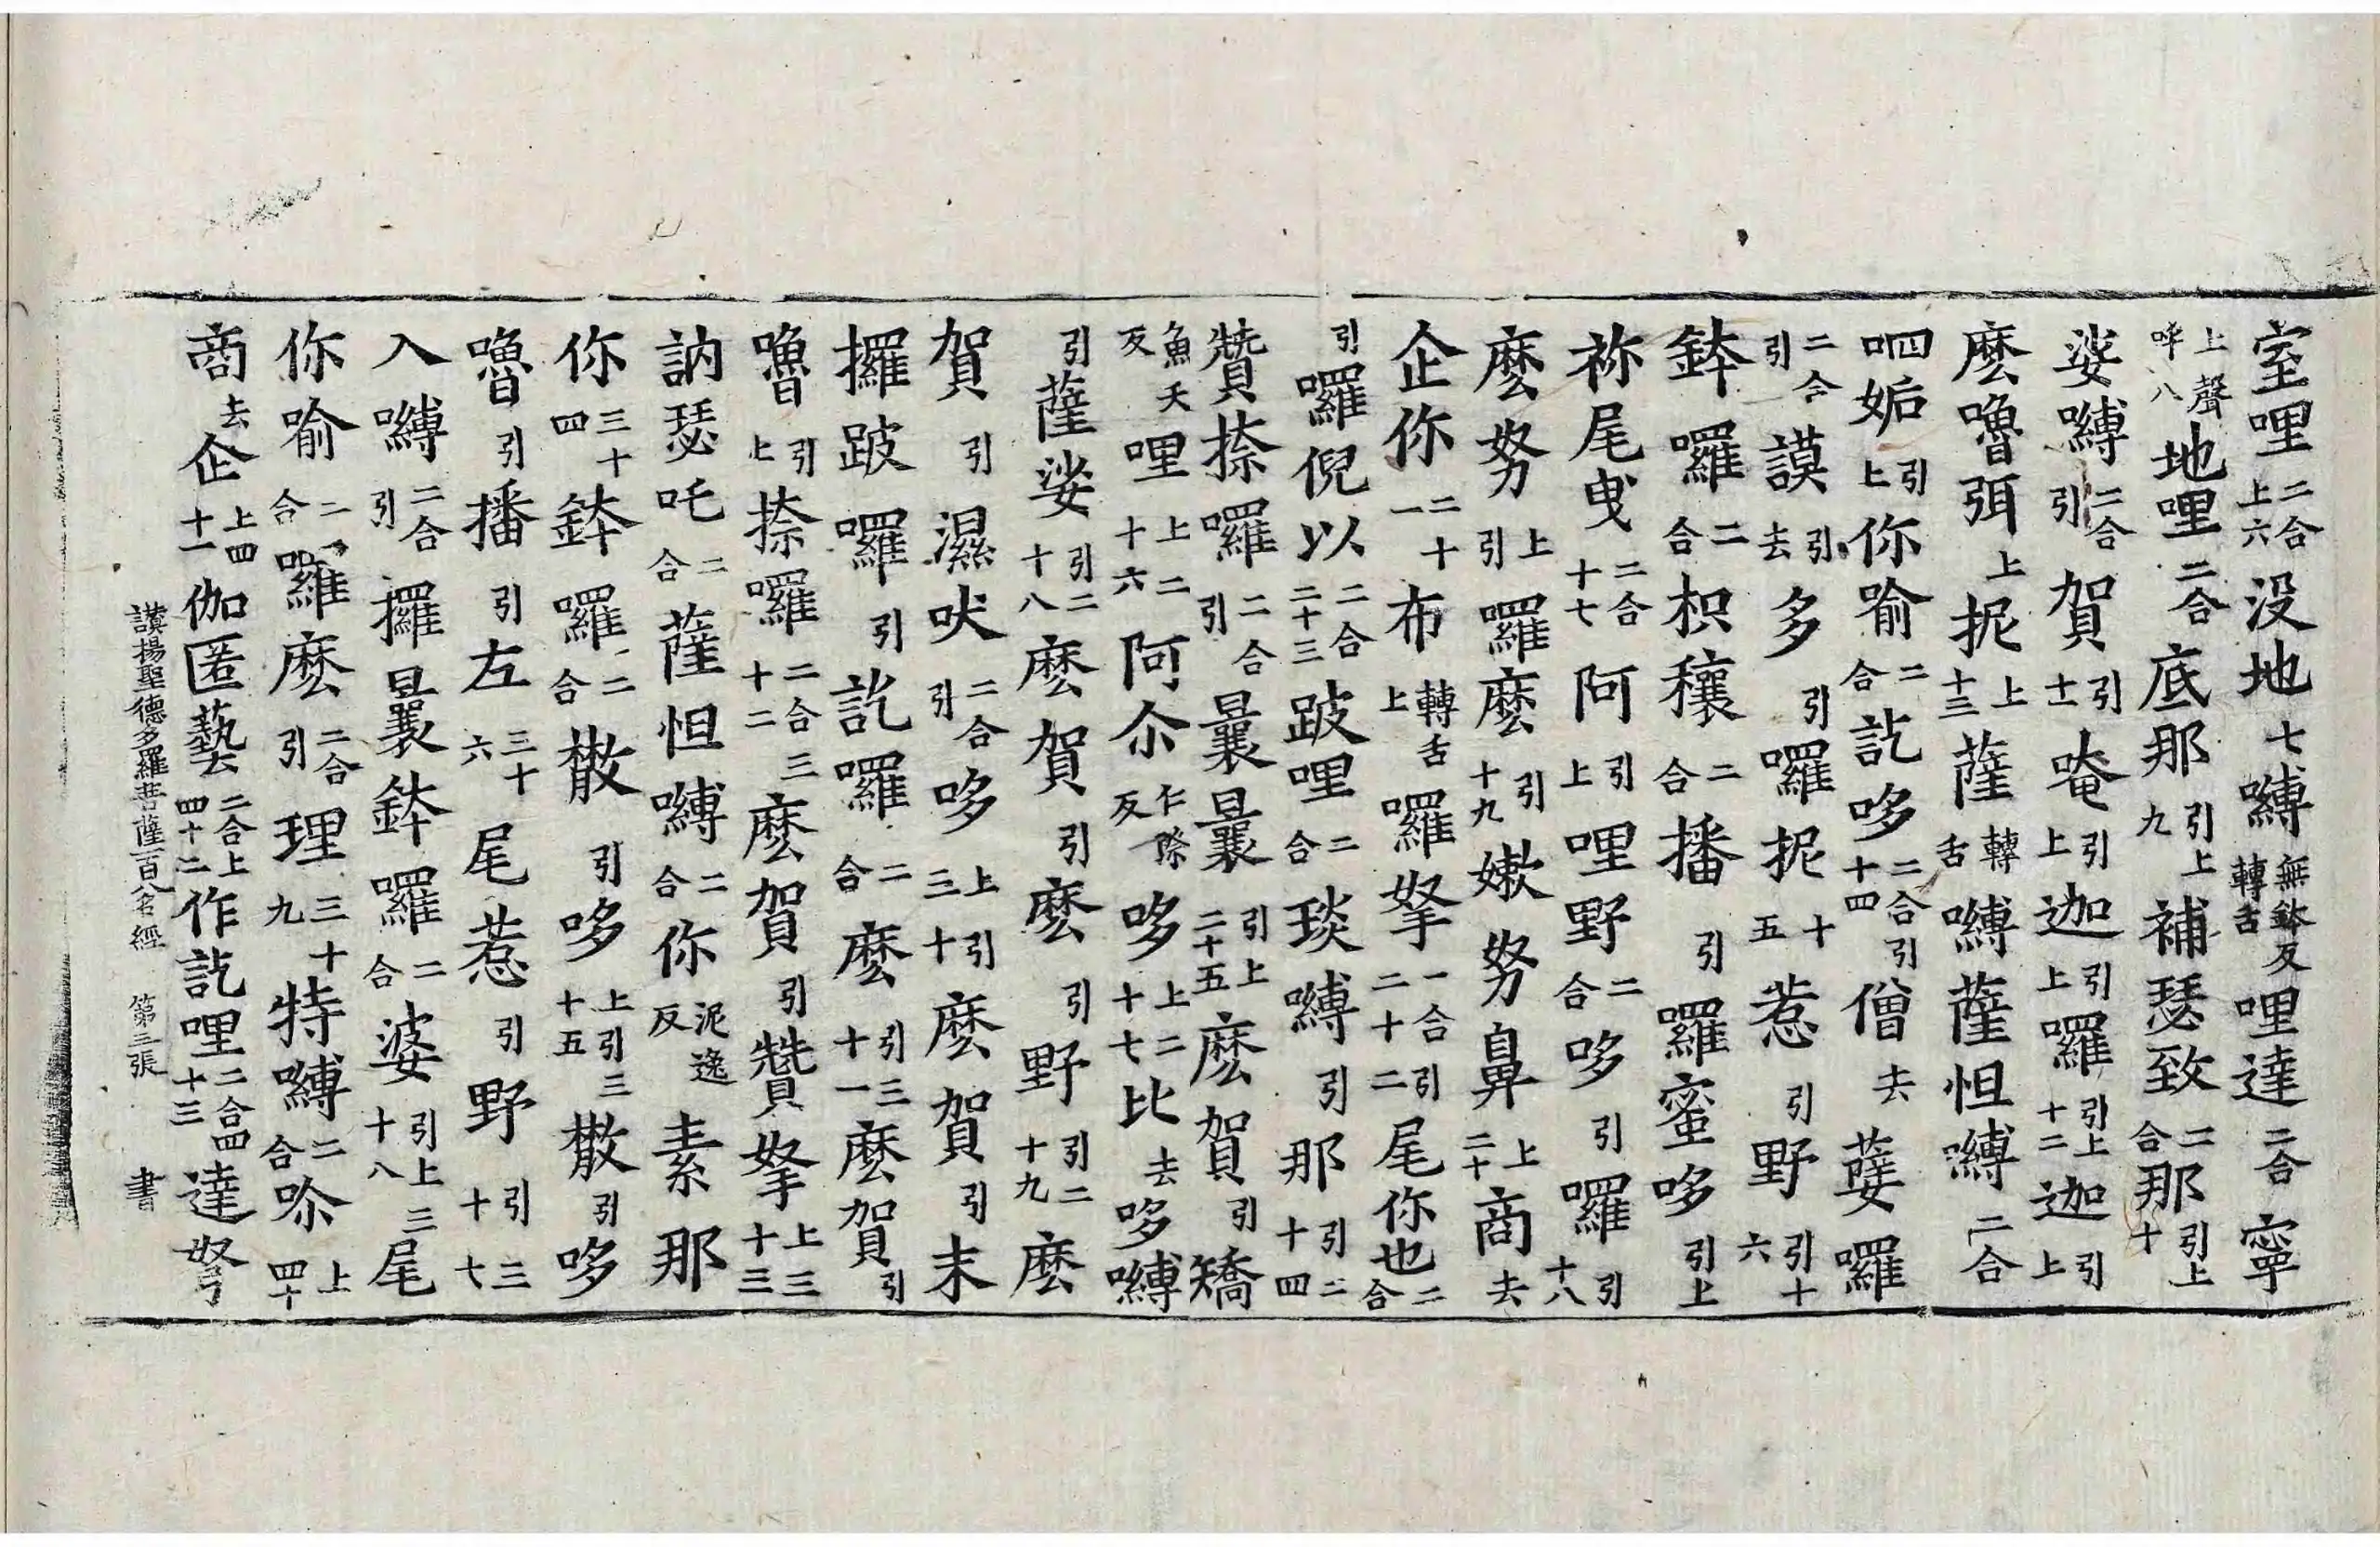 室哩二合上六没地七嚩無鉢反轉舌哩達二合寧
上聲呼八地哩二合底那引上九補瑟致二合那引上十
娑嚩二合引賀引十一唵引上迦引上囉引上十二迦引上
麽嚕弭上抳上十三薩轉舌嚩薩怛嚩二合
呬姤引上你喻二合訖哆二合引十四僧去薩囉
二合引謨引去多引囉抳十五惹引野引十六
鉢囉二合枳穰二合播引囉蜜哆引上
祢尾曳二合十七阿引上哩野二合哆引囉引十八
麽努上引囉麽引十九嫰努鼻上二十商去
企你二十一布轉舌上囉拏一合引二十二尾你也二合
引囉倪以二合二十三跛哩二合琰嚩引那引二十四
贊捺囉二合引曩曩引上二十五麽賀引矯
魚夭反哩上二十六阿尒仁際反哆上二十七比去哆嚩
引薩娑引二十八麽賀引麽引野引二十九麽
賀引濕吠二合引哆上引三十麽賀引末
攞跛囉引訖囉二合麽引三十一麽賀引
嚕引上捺囉二合三十二麽賀引贊拏上三十三
訥瑟吒二合薩怛嚩二合你泥逸反素那
你三十四鉢囉二合散引哆上引三十五散引哆
嚕引播引左三十六尾惹引野引三十七
入嚩二合引攞曩鉢囉二合婆引上三十八尾
你喻二合囉麽二合引理三十九特嚩二合尒上四十
商去企上四十一伽匿藝二合上四十二作訖哩二合四十三達弩
讚揚聖德多羅菩薩一百八名經 第三張 書